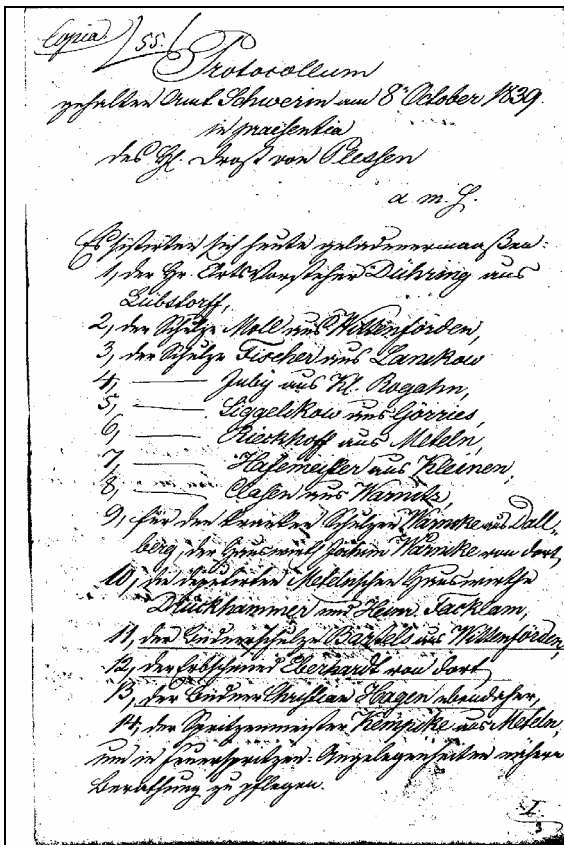 Copia. 55.
Protocollum
gehalten Amt Schwerin am 8t October 1839.
in praesentia
des H. Drost von Plessen
a. m. H.
Es sistirten sich heute geladenermaaßen:
1, der Hr. Ortsvorsteher Dühring aus
Lübstorff,
2, der Schulze Moll aus Wittenförden,
3, der Schulze Fischer aus Lankow
4, ——— aus Kl. Rogahn,
5, ——— Liggelikow aus Görries,
6, ——— Rieckhoff aus Meteln,
7, ——— Hafemeister aus Kleinen,
8, ——— Clasen aus Warnitz,
9, für den kranken Schulzen Warncke aus Dall-
berg, der Hauswirth Jochim Warncke von dort,
10, die deputirten Metelnschen Hauswirthe
Drückhammer und Heinr. Facklam,
11, der Büdnerschulze Bartels aus Wittenförden,
12, der Erbschmied Eberhardt von dort
13, der Büdner Christian Hagen ebendaher,
14, der Spritzenmeister Kempcke aus Meteln,
um in Feuerspritzen-Angelegenheiten nähere
Berathung zu pflegen.
I.
3